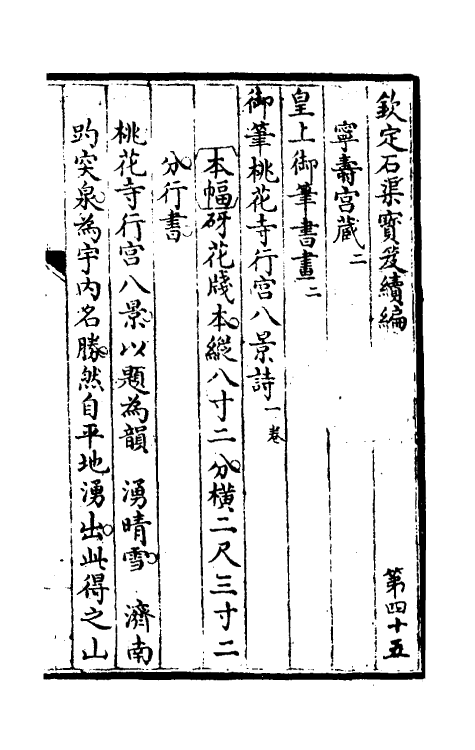 欽定石渠寶笈續編　第四十五
寧壽宮藏二
皇上御筆書畫二
御筆桃花寺行宮八景詩一卷
本幅研花牋本縱八寸二分橫二尺三寸二
分行書
桃花寺行宮八景以題為韻　湧晴雪　濟南
趵突泉為宇内名勝然自平地湧出此得之山